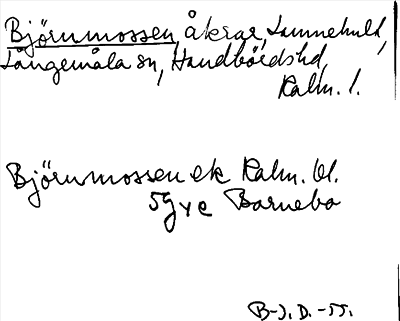 Björnmossen, åkrar, Sunnehult,
Långemåla sn, Handbördshd,
Kalm. l.
Björnmossen ek Kalm. bl.
5G y e Barnebo
B-J. D. -55.